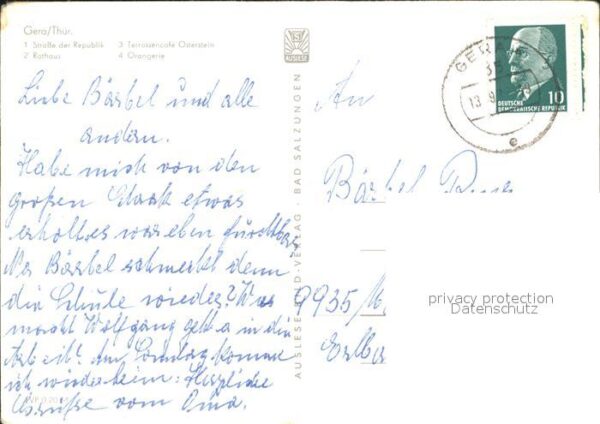 Gera/Thür.
1 Straße der Republik 3 Terrassencafe Osterstein
2 Rathaus 4 Orangerie
Liebe Bärbel und alle
andern.
Habe mich von den
großen etwas
erholt es war eben furchtbar
Na Bärbel schmeckt denn
die Schule wieder? Was
macht Wolfgang geht a in die
Arbeit? Am Sonntag komme
ich wieder heim: Herzliche
Grüße vom Oma.
AUSLESE-BILD-VERLAG · BAD SALZUNGEN
GERA
13. 9.
DEUTSCHE
DEMOKRATISCHE REPUBLIK
10
An
Bärbel
9935 / M.
privacy protection
Datenschutz